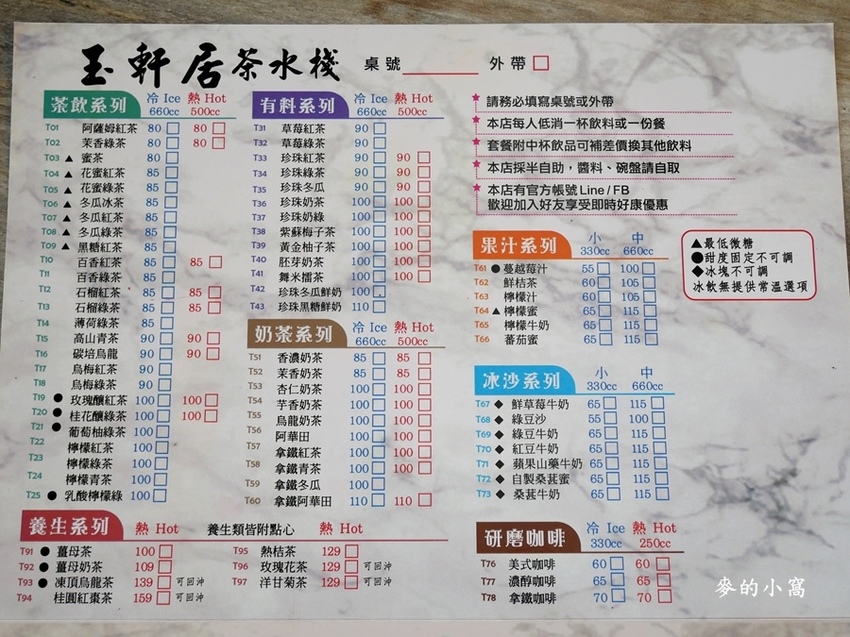 玉軒居茶水棧 桌號 外帶
茶飲系列 冷 Ice 660cc 熱 Hot 500cc
T01 阿薩姆紅茶 80 80
T02 茉香綠茶 80 80
T03 ▲ 蜜茶 80
T04 ▲ 花蜜紅茶 85
T05 ▲ 花蜜綠茶 85
T06 ▲ 冬瓜冰茶 85
T07 ▲ 冬瓜紅茶 85
T08 ▲ 冬瓜綠茶 85
T09 ▲ 黑糖紅茶 85
T10 百香紅茶 85 85
T11 百香綠茶 85
T12 石榴紅茶 85 85
T13 石榴綠茶 85 85
T14 薄荷綠茶 85
T15 高山青茶 90 90
T16 碳培烏龍 90 90
T17 烏梅紅茶 90
T18 烏梅綠茶 90
T19 ● 玫瑰釀紅茶 100 100
T20 ● 桂花釀綠茶 100 100
T21 ● 葡萄柚綠茶 100
T22 檸檬紅茶 100
T23 檸檬綠茶 100
T24 檸檬青茶 100
T25 ● 乳酸檸檬綠 100
有料系列 冷 Ice 660cc 熱 Hot 500cc
T31 草莓紅茶 90
T32 草莓綠茶 90
T33 珍珠紅茶 90 90
T34 珍珠綠茶 90 90
T35 珍珠冬瓜 90 90
T36 珍珠奶茶 100 100
T37 珍珠奶綠 100 100
T38 紫蘇梅子茶 100 100
T39 黃金柚子茶 100 100
T40 胚芽奶茶 100 100
T41 舞米擂茶 100 100
T42 珍珠冬瓜鮮奶 100
T43 珍珠黑糖鮮奶 110
奶茶系列 冷 Ice 660cc 熱 Hot 500cc
T51 香濃奶茶 85 85
T52 茉香奶茶 85 85
T53 杏仁奶茶 100 100
T54 芋香奶茶 100 100
T55 烏龍奶茶 100 100
T56 阿華田 100 100
T57 拿鐵紅茶 100 100
T58 拿鐵青茶 100 100
T59 拿鐵冬瓜 100
T60 拿鐵阿華田 110 110
★ 請務必填寫桌號或外帶
★ 本店每人低消一杯飲料或一份餐
★ 套餐附中杯飲品可補差價換其他飲料
★ 本店採半自助，醬料、碗盤請自取
★ 本店有官方帳號 Line / FB
歡迎加入好友享受即時好康優惠
果汁系列 小 330cc 中 660cc
T61 ● 蔓越莓汁 55 100
T62 鮮桔茶 60 105
T63 檸檬汁 60 105
T64 ▲ 檸檬蜜 65 115
T65 檸檬牛奶 65 115
T66 蕃茄蜜 65 115
▲最低微糖
●甜度固定不可調
◆冰塊不可調
冰飲無提供常溫選項
冰沙系列 小 330cc 中 660cc
T67 ◆ 鮮草莓牛奶 65 115
T68 ◆ 綠豆沙 55 100
T69 ◆ 綠豆牛奶 65 115
T70 ◆ 紅豆牛奶 65 115
T71 ◆ 蘋果山藥牛奶 65 115
T72 ◆ 自製桑葚蜜 65 115
T73 ◆ 桑葚牛奶 65 115
養生系列 熱 Hot 養生類皆附點心 熱 Hot
T91 ● 薑母茶 100
T92 ● 薑母奶茶 109
T93 ● 凍頂烏龍茶 139 可回沖
T94 桂圓紅棗茶 159 可回沖
T95 熱桔茶 129
T96 玫瑰花茶 129 可回沖
T97 洋甘菊茶 129 可回沖
研磨咖啡 冷 Ice 330cc 熱 Hot 250cc
T76 美式咖啡 60 60
T77 濃醇咖啡 65 65
T78 拿鐵咖啡 70 70
麥的小窩